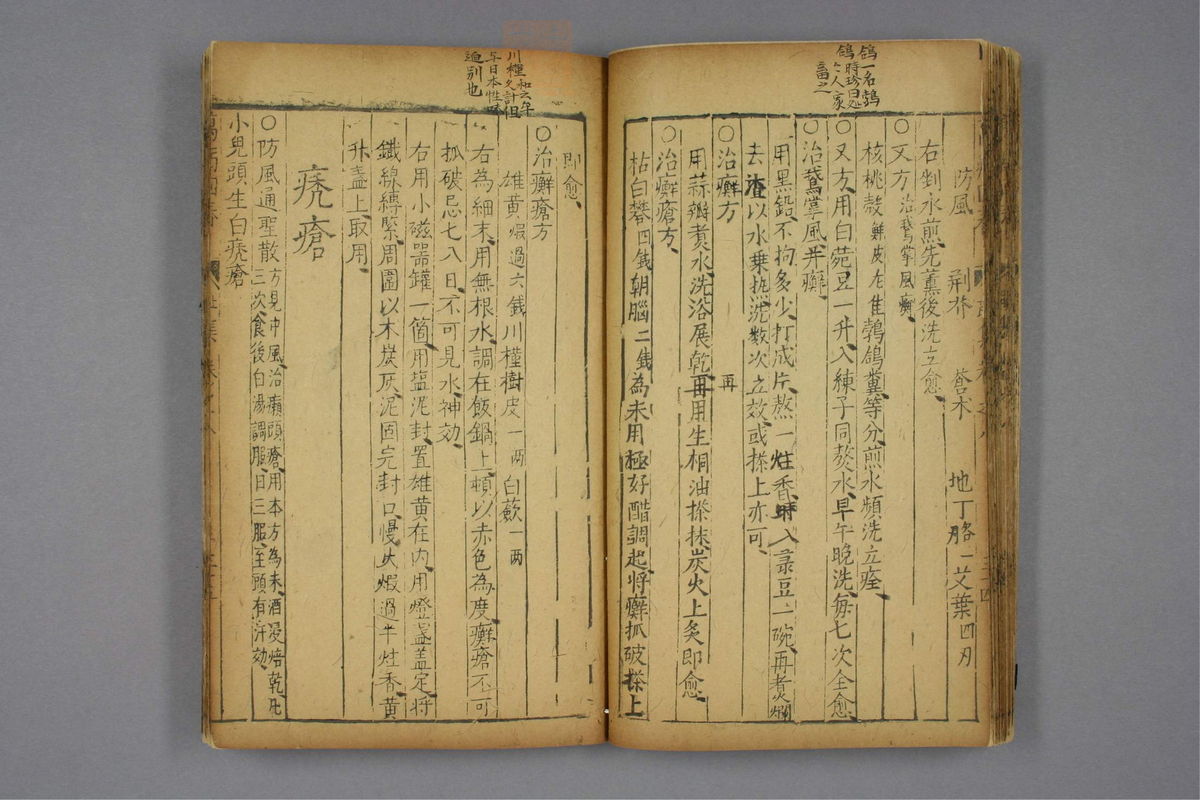 鴿一名鵓
鴿時珍曰処
人家
畜之
防風 荊芥 蒼朮 地丁 胳一 艾葉四刃
右剉水煎先薰後洗立愈
〇又方治鵞掌風癬
核桃殻鮮皮尢佳鵓鴿糞等分煎水頻洗立痊
〇又方用白菀豆一升入練子同熬水早午晚洗每七次全愈
〇治鵞掌風并癬
用黑鉛不拘多少打成片熬一炷香時入菉豆一碗再煑爛
去渣以水乗熱洗數次立效或搽上亦可
〇治癬方
用蒜瓣煑水洗浴展乾再用生桐油搽抹炭火上炙即愈
再
〇治癬瘡方
枯白礬四錢朝腦二錢為末用極好醋調起將癬抓破搽上
川槿
与日本性
迥别也
即愈
〇治癬瘡方
雄黃煆過六錢川槿樹皮一兩白蘞一兩
右為細末用無根水調在飯鍋上頓以赤色為度癬瘡不可
抓破忌七八日不可見水神効
右用小磁器罐一箇用塩泥封置雄黃在内用燈盞蓋定將
鐵線縛緊周圍以木炭灰泥固完封口慢火煆過半炷香黃
升盞上取用
禿瘡
〇防風通聖散方見中風治癩頭瘡用本方為末酒浸焙乾凡
三次食後白湯調服日三服至頭有汗効
小兒頭生白禿瘡